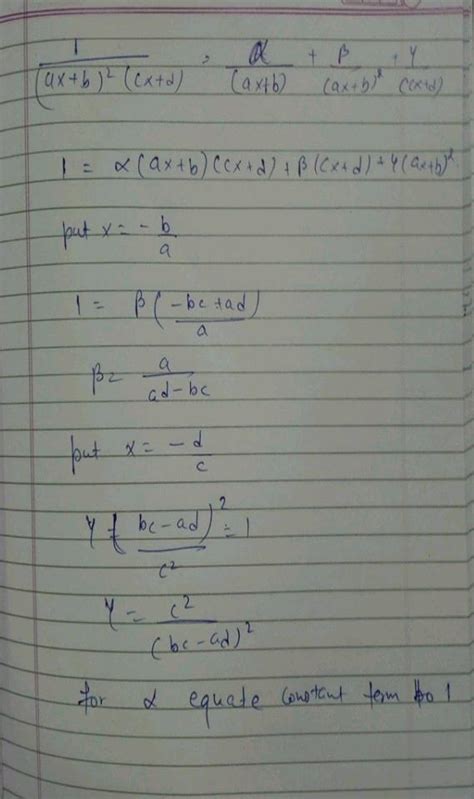 1/((ax+b)² (cx+d)) = α/(ax+b) + β/(ax+b)² + γ/(cx+d)
1 = α(ax+b)(cx+d) + β(cx+d) + γ(ax+b)²
put x = -b/a
1 = β((-bc+ad)/a)
β = a/(ad-bc)
put x = -d/c
γ (bc-ad)²/c² = 1
γ = c²/(bc-ad)²
for α equate constant term to 1